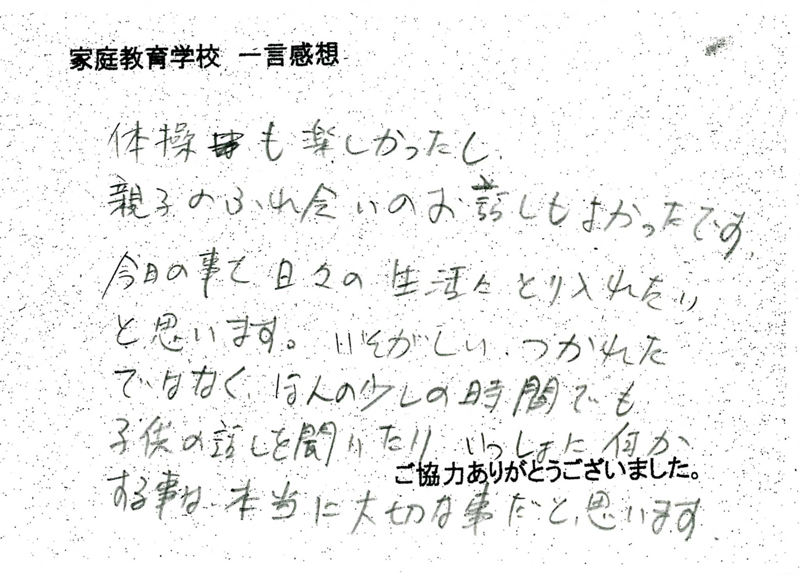 家庭教育学校 一言感想
体操も楽しかったし、
親子のふれ合いのお話しもよかったです。
今日の事で日々の生活にとり入れたい
と思います。いそがしい、つかれた
ではなく、ほんの少しの時間でも
子供の話しを聞いたり いっしょに何か
ご協力ありがとうございました。
する事は、本当に大切な事だと思います。